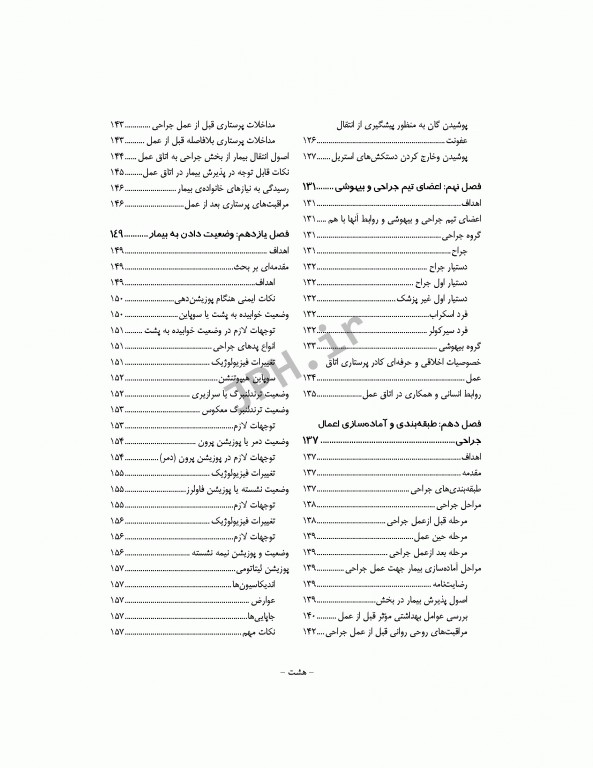 پوشیدن گان به منظور پیشگیری از انتقال
عفونت ۱۲۶
پوشیدن وخارج کردن دستکش‌های استریل ۱۲۷
فصل نهم: اعضای تیم جراحی و بیهوشی ۱۳۱
اهداف ۱۳۱
اعضای تیم جراحی و بیهوشی و روابط آنها با هم ۱۳۱
گروه جراحی ۱۳۱
جراح ۱۳۱
دستیار جراح ۱۳۲
دستیار اول جراح ۱۳۲
دستیار اول غیر پزشک ۱۳۲
فرد اسکراب ۱۳۲
فرد سیرکولر ۱۳۲
گروه بیهوشی ۱۳۳
خصوصیات اخلاقی و حرفه‌ای کادر پرستاری اتاق
عمل ۱۳۴
روابط انسانی و همکاری در اتاق عمل ۱۳۵
فصل دهم: طبقه‌بندی و آماده‌سازی اعمال
جراحی ۱۳۷
اهداف ۱۳۷
مقدمه ۱۳۷
طبقه‌بندی‌های جراحی ۱۳۷
مراحل جراحی ۱۳۸
مرحله قبل ازعمل جراحی ۱۳۸
مرحله حین عمل ۱۳۹
مرحله بعد ازعمل جراحی ۱۳۹
مراحل آماده‌سازی بیمار جهت عمل جراحی ۱۳۹
رضایت‌نامه ۱۳۹
اصول پذیرش بیمار در بخش ۱۳۹
بررسی عوامل بهداشتی مؤثر قبل از عمل ۱۴۰
مراقبت‌های روحی روانی قبل از عمل جراحی ۱۴۲
مداخلات پرستاری قبل از عمل جراحی ۱۴۳
مداخلات پرستاری بلافاصله قبل از عمل ۱۴۳
اصول انتقال بیمار از بخش جراحی به اتاق عمل ۱۴۴
نکات قابل توجه در پذیرش بیمار در اتاق عمل ۱۴۵
رسیدگی به نیازهای خانواده‌ی بیمار ۱۴۶
مراقبت‌های پرستاری بعد از عمل ۱۴۶
فصل یازدهم: وضعیت دادن به بیمار ۱۴۹
اهداف ۱۴۹
مقدمه‌ای بر بحث ۱۴۹
اهداف ۱۴۹
نکات ایمنی هنگام پوزیشن‌دهی ۱۵۰
وضعیت خوابیده به پشت یا سوپاین ۱۵۰
توجهات لازم در وضعیت خوابیده به پشت ۱۵۱
انواع پدهای جراحی ۱۵۱
تغییرات فیزیولوژیک ۱۵۱
سوپاین هیپوتنشن ۱۵۲
وضعیت ترندلنبرگ یا سرازیری ۱۵۲
وضعیت ترندلنبرگ معکوس ۱۵۳
توجهات لازم ۱۵۳
وضعیت دمر یا پوزیشن پرون ۱۵۴
توجهات لازم در پوزیشن پرون (دمر) ۱۵۴
تغییرات فیزیولوژیک ۱۵۵
وضعیت نشسته یا پوزیشن فاولرز ۱۵۵
توجهات لازم ۱۵۵
تغییرات فیزیولوژیک ۱۵۶
توجهات لازم ۱۵۶
وضعیت و پوزیشن نیمه نشسته ۱۵۶
پوزیشن لیتاتومی ۱۵۷
اندیکاسیون‌ها ۱۵۷
عوارض ۱۵۷
جاپایی‌ها ۱۵۷
نکات مهم ۱۵۷
- هشت -
JPH.ir